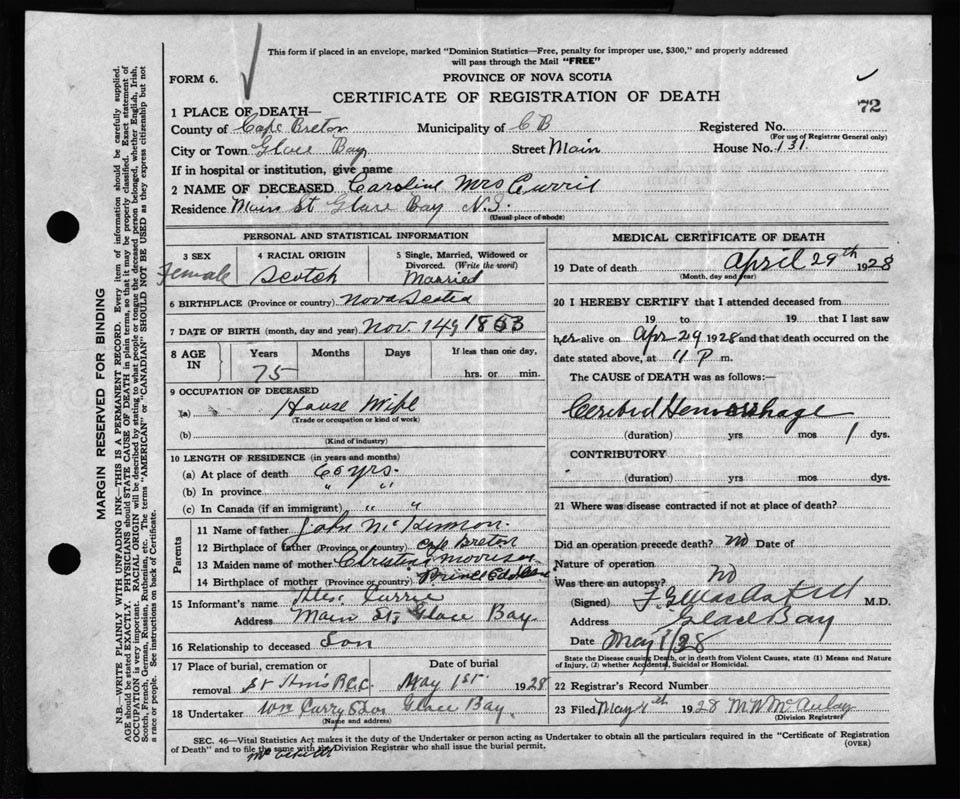 This form if placed in an envelope, marked "Dominion Statistics—Free, penalty for improper use, $300," and properly addressed
will pass through the Mail "FREE"
FORM 6.
PROVINCE OF NOVA SCOTIA
CERTIFICATE OF REGISTRATION OF DEATH
72
1 PLACE OF DEATH—
County of Cape Breton Municipality of C B Registered No.
(For use of Registrar General only)
City or Town Glace Bay Street Main House No. 131
If in hospital or institution, give name
2 NAME OF DECEASED Caroline Mrs Currie
Residence Main St Glace Bay N.S.
(Usual place of abode)
PERSONAL AND STATISTICAL INFORMATION
3 SEX Female
4 RACIAL ORIGIN Scotch
5 Single, Married, Widowed or
Divorced. (Write the word)
Married
6 BIRTHPLACE (Province or country) Nova Scotia
7 DATE OF BIRTH (month, day and year) Nov. 14
8 AGE IN Years Months Days If less than one day,
75 hrs. or min.
9 OCCUPATION OF DECEASED
(a) House Wife
(Trade or occupation or kind of work)
(b)
(Kind of industry)
10 LENGTH OF RESIDENCE (in years and months)
(a) At place of death yrs.
(b) In province " "
(c) In Canada (if an immigrant) " "
Parents
11 Name of father John McKinnon
12 Birthplace of father (Province or country) Cape Breton
13 Maiden name of mother Christina Morrison
14 Birthplace of mother (Province or country) Prince Edd
15 Informant's name Alex. Currie
Address Main St, Glace Bay
16 Relationship to deceased Son
17 Place of burial, cremation or Date of burial
removal St Ann's R.C.C. May 1st 1928
18 Undertaker Wm Curry & Son Glace Bay
(Name and address)
MEDICAL CERTIFICATE OF DEATH
19 Date of death April 29th 1928
(Month, day and year)
20 I HEREBY CERTIFY that I attended deceased from
19 to 19 that I last saw
her alive on Apr 29 1928 and that death occurred on the
date stated above, at 11 P m.
The CAUSE of DEATH was as follows:—
Cerebral Hemorrhage
(duration) yrs mos 1 dys.
CONTRIBUTORY
(duration) yrs mos dys.
21 Where was disease contracted if not at place of death?
Did an operation precede death? No Date of
Nature of operation
Was there an autopsy? no
(Signed) M.D.
Address Glace Bay
Date May 1/28
State the Disease causing Death, or in death from Violent Causes, state (1) Means and Nature
of Injury, (2) whether Accidental, Suicidal or Homicidal.
22 Registrar's Record Number
23 Filed May 4th 1928 M W McAulay
(Division Registrar)
SEC. 46—Vital Statistics Act makes it the duty of the Undertaker or person acting as Undertaker to obtain all the particulars required in the "Certificate of Registration
of Death" and to file the same with the Division Registrar who shall issue the burial permit.
(OVER)
MARGIN RESERVED FOR BINDING
N.B.—WRITE PLAINLY WITH UNFADING INK—THIS IS A PERMANENT RECORD. Every item of information should be carefully supplied.
AGE should be stated EXACTLY. PHYSICIANS should STATE CAUSE OF DEATH in plain terms, so that it may be properly classified. Exact statement of
OCCUPATION is very important. RACIAL ORIGIN will be described by stating to what people or tongue the deceased person belonged, whether English, Irish,
Scotch, French, German, Russian, Ruthenian, etc. The terms "AMERICAN" or "CANADIAN" SHOULD NOT BE USED as they express citizenship but not
a race or people. See instructions on back of Certificate.